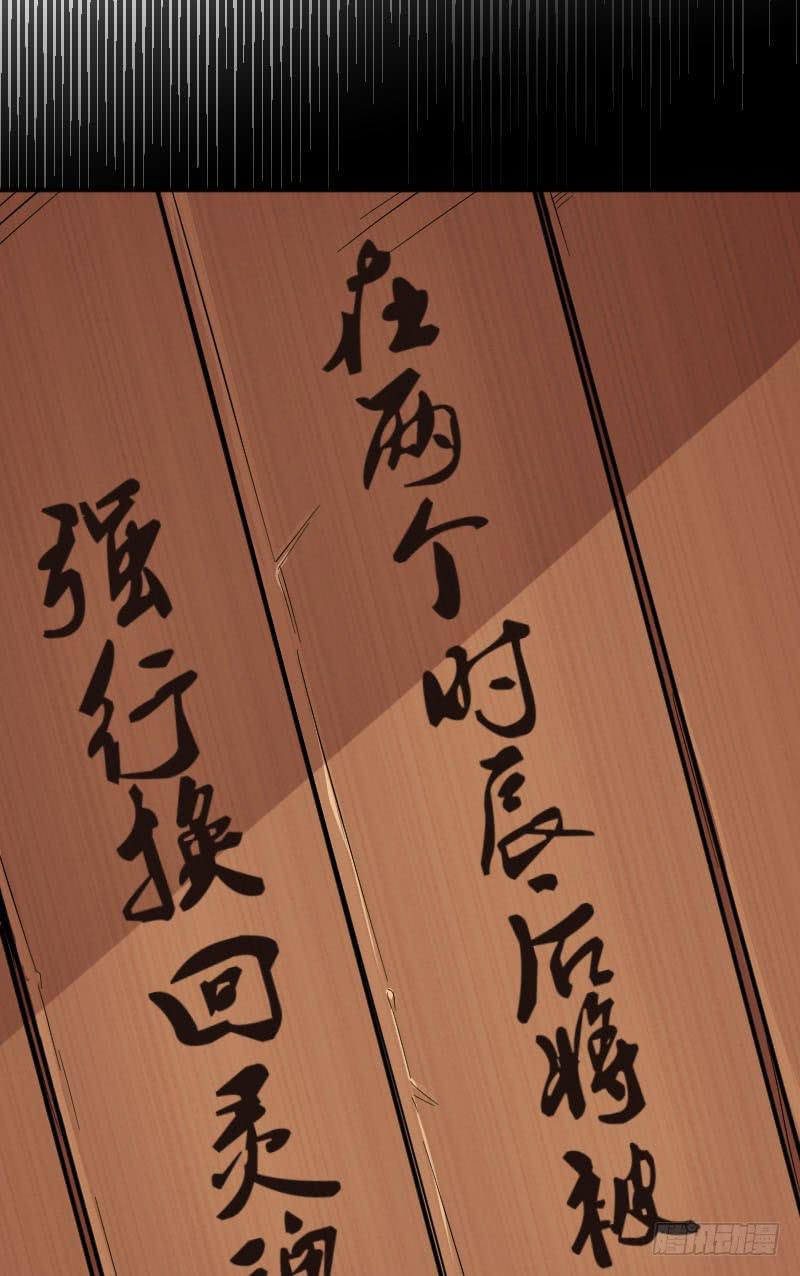 在两个时辰后将被
强行换回灵魂
腾讯动漫